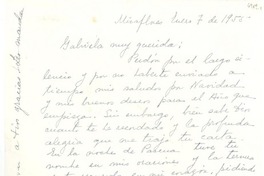 Miraflores Enero 7 de 1955
Gabriela muy querida:
Perdón por el largo si-
lencio y por no haberte enviado a
tiempo mis saludos por Navidad
y mis buenos deseos para el Año que
empieza. Sin embargo, bien sabe Dios
cuánto te he recordado y la profunda
alegría que me trajo tu carta.
En la noche de Pascua tuve tu
nombre en mis oraciones y la
en mi corazón, pidiendo
a Dios gracias